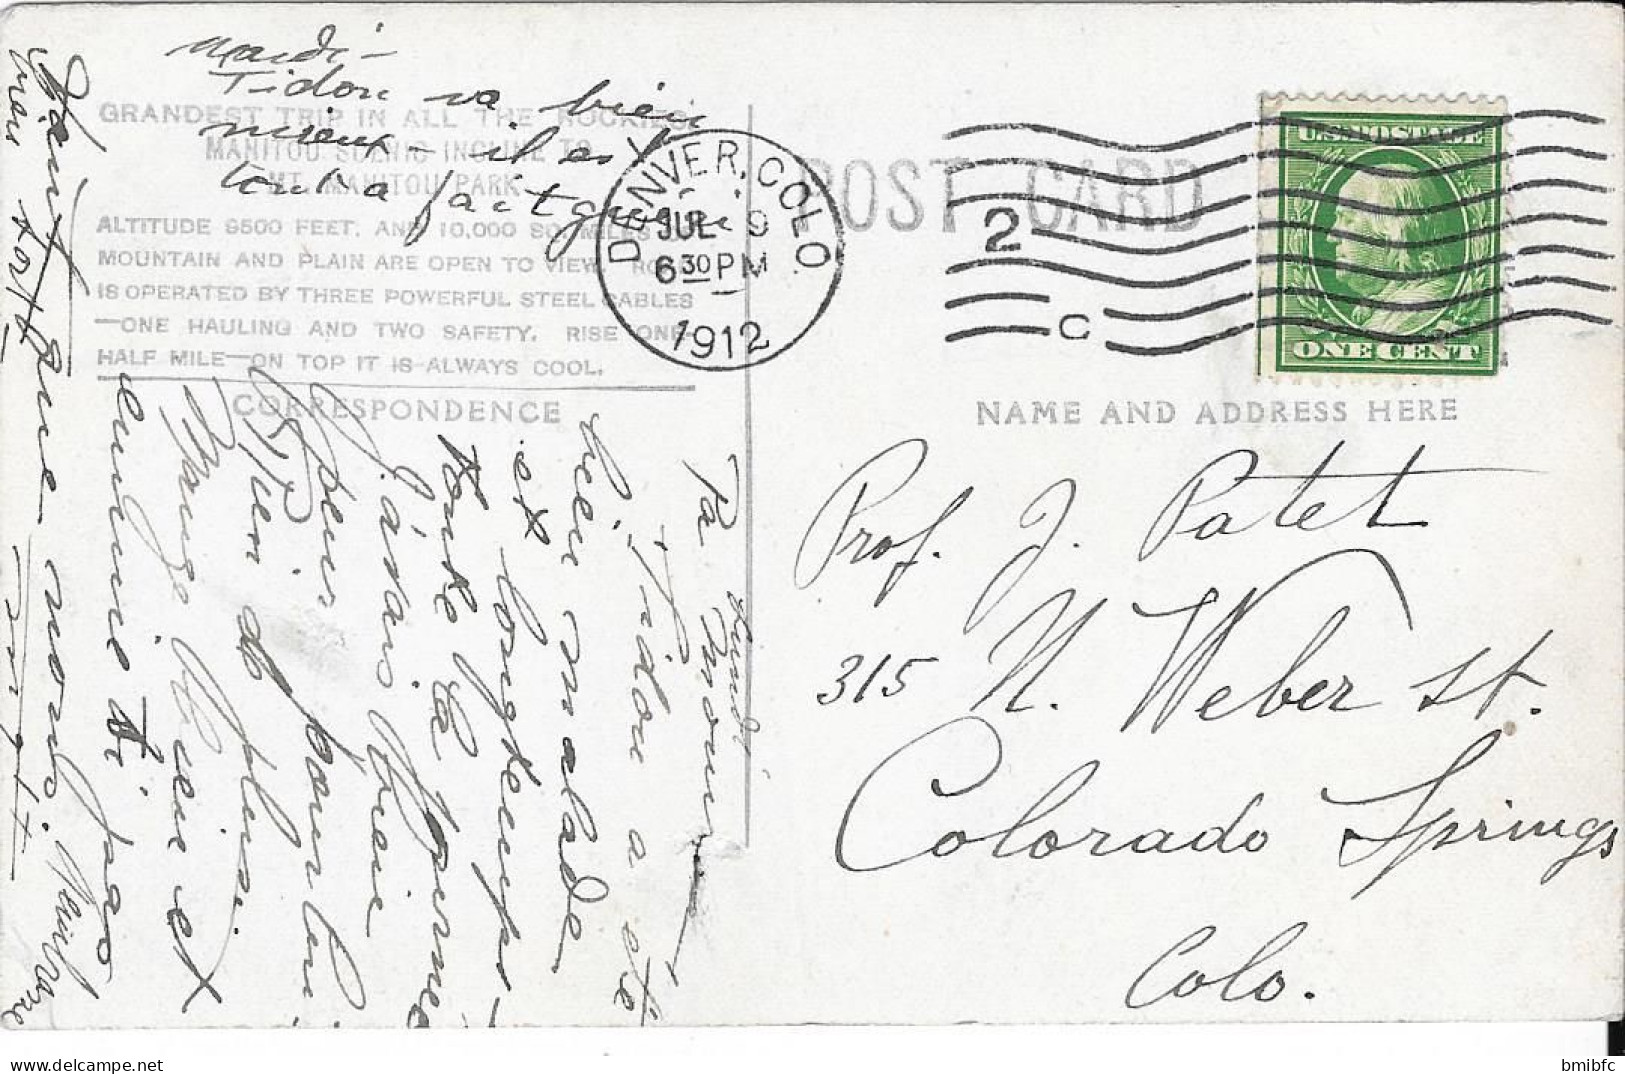 Mardi -
Tidou va bien
mieux - il est
tout à fait guéri
GRANDEST TRIP IN ALL THE ROCKIES
MANITOU SCENIC INCLINE TO
MT. MANITOU PARK
ALTITUDE 9500 FEET, AND 10,000 SQ. MILES OF
MOUNTAIN AND PLAIN ARE OPEN TO VIEW.
IS OPERATED BY THREE POWERFUL STEEL CABLES
—ONE HAULING AND TWO SAFETY. RISE ONE-
HALF MILE—ON TOP IT IS ALWAYS COOL.
CORRESPONDENCE
POST CARD
DENVER, COLO
JUL 9
6 30 PM
1912
2
C
U.S. POSTAGE
ONE CENT
NAME AND ADDRESS HERE
Prof. J. Patet
315 N. Weber st.
Colorado Springs
Colo.
Lundi
Tidou a été
bien malade
et longtemps -
toute la journée
J'avais bien
peur pour lui
Rien de plus.
Mange bien et
ennuie ti pas
que nous.
bmibfc